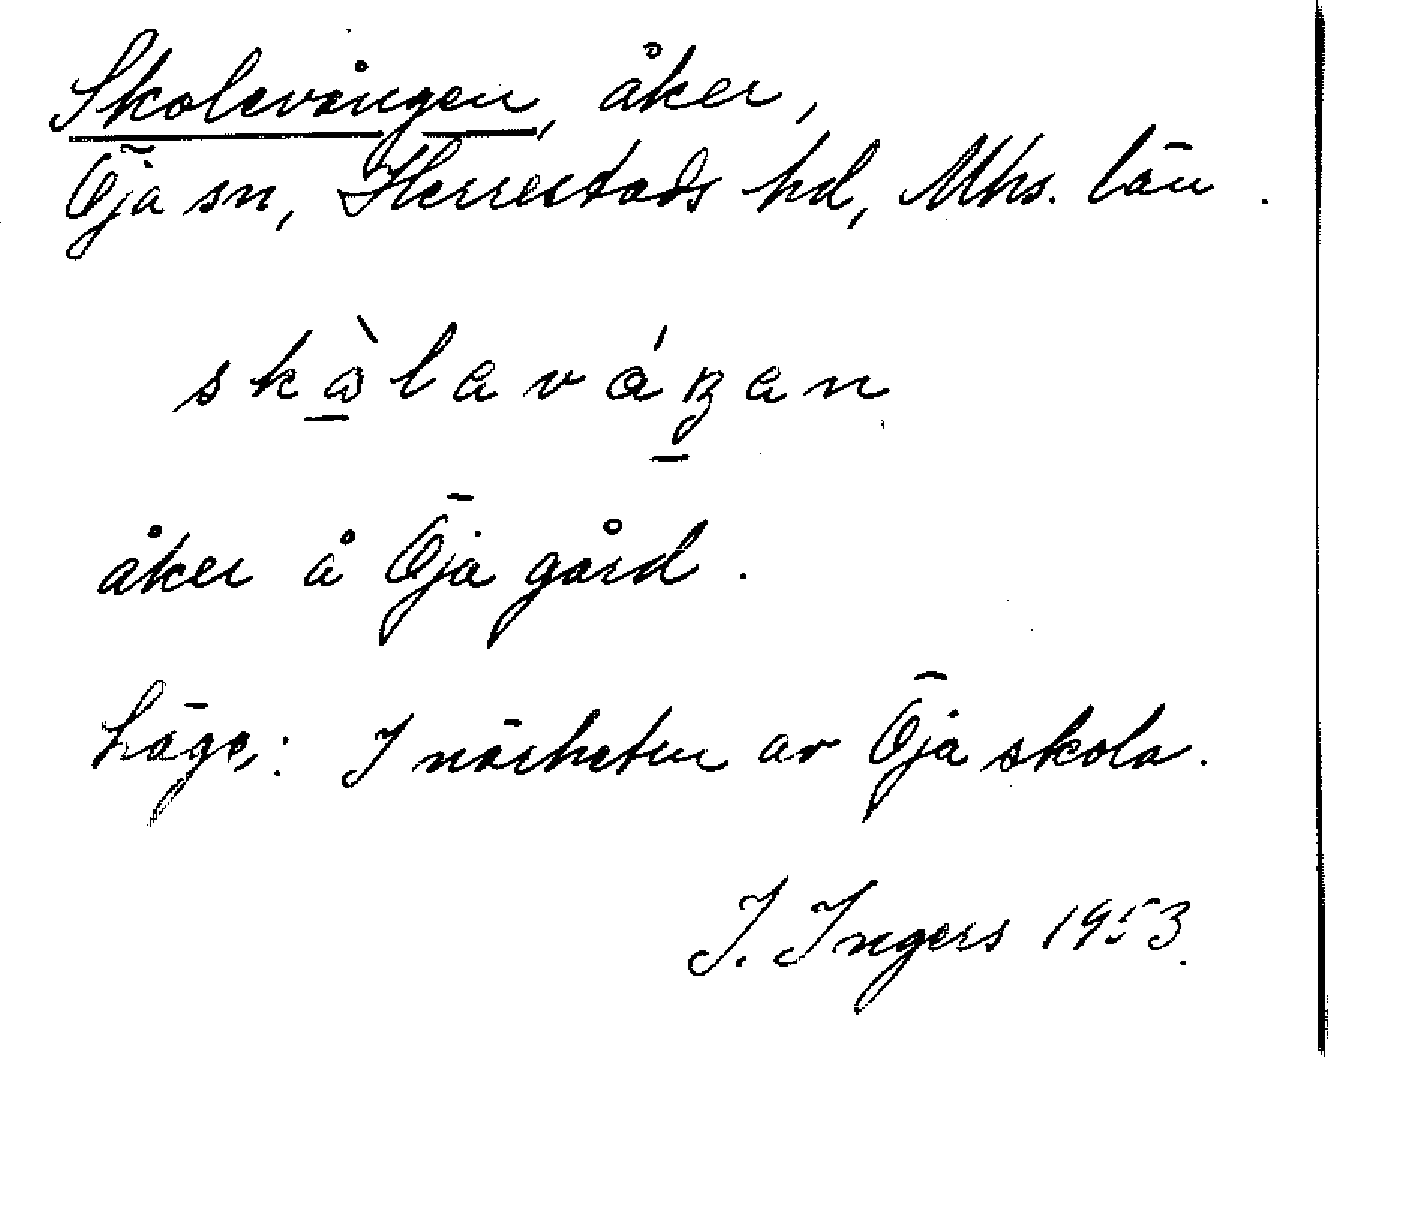 Skolevången, åker,
Öja sn, Herrestads hd, Mhs. län.
åker å Öja gård.
Läge: I närheten av Öja skola.
I. Ingers 1953.